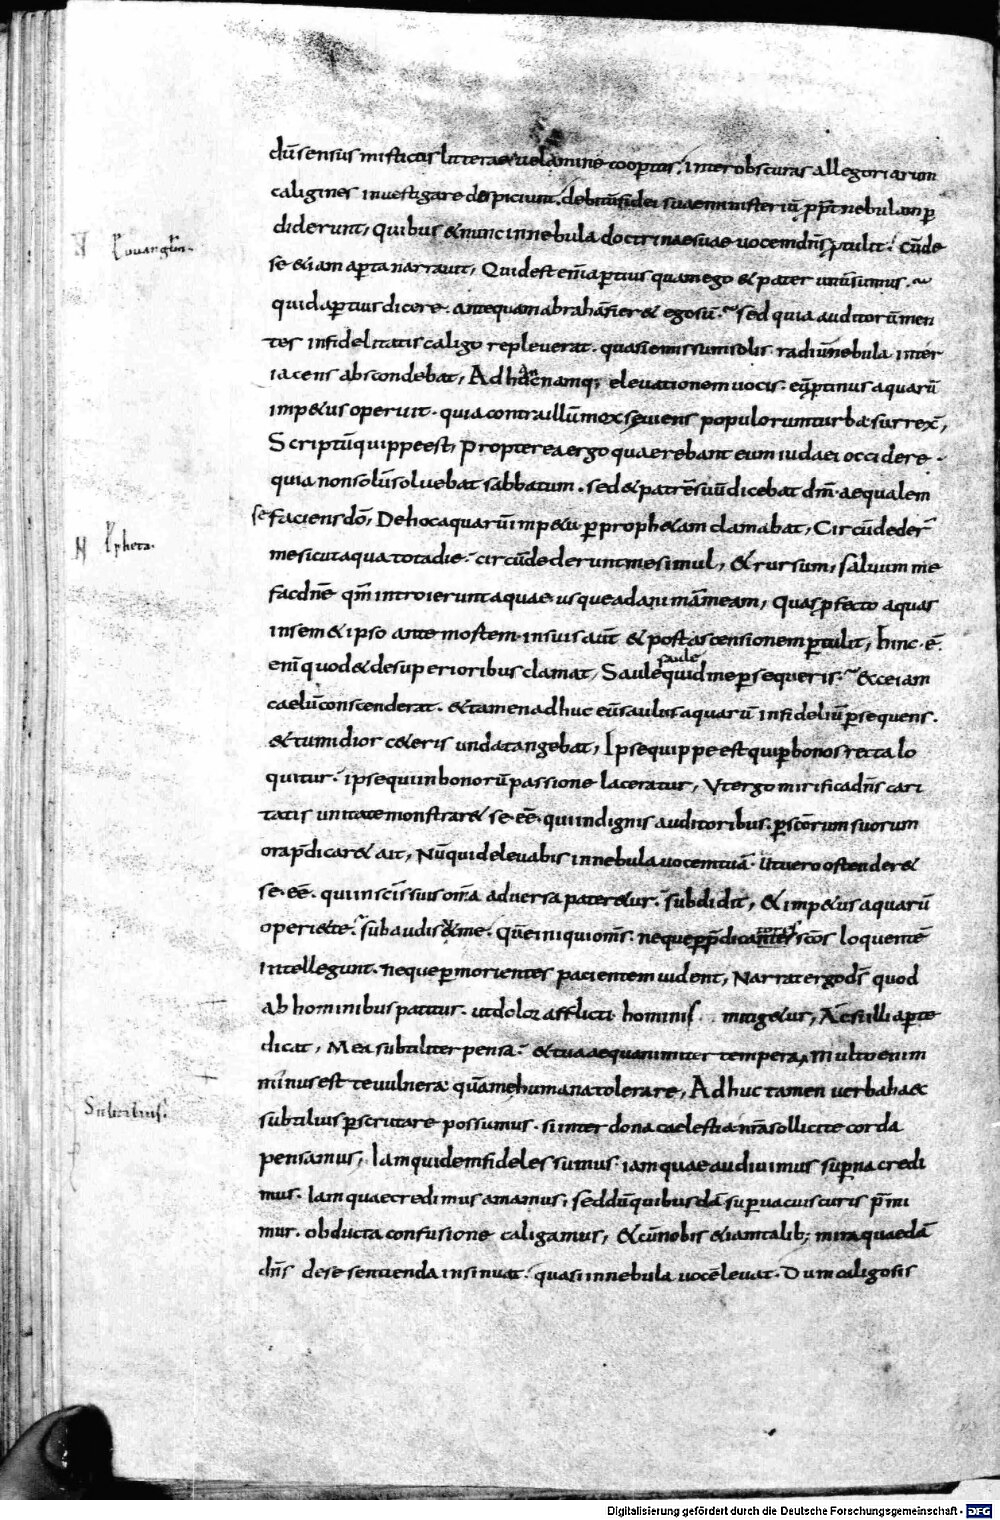 dū sensus misticis litterae uelamine coopertus, inter obscuras allegoriarum
caligines inuestigare despiciunt, debitū fidei suae ministeriū ꝓpt nebulam ꝑ
diderunt, Quibus & nunc in nebula doctrinae suae uocem dn̄s ꝓtulit, cū de
ꝑ euangliū.
se &iam aperta narrauit, Quid est eni᷈ aꝑtius quam ego & pater unū sumus.
quid aꝑtius dicere. antequam abrahā fier& ego sū. sed quia auditorū men
tes infidelitatis caligo repleuerat. quasi emissum solis radiū nebula inter
iacens abscondebat, Ad hanc namq; eleuationem uocis. eū ꝓtinus aquarū
imp&us operuit. quia contra illū mox seuiens populorum turba surrex̄,
Scriptū quippe est, Propterea ergo quaerebant eum iudaei occidere.
quia non solū soluebat sabbatum. sed & patrē suū dicebat dm̄. aequalem
se faciens dō, De hoc aquarū imp&u ꝑ proph&am clamabat, Circūdeder̄
ꝑ ꝓpheta.
me sicut aqua tota die. circūdederunt me simul, & rursum, saluum me
fac dn̄e qm̄ introierunt aquae usque ad animā meam, Quas ꝓfecto aquas
in sem&ipso ante mortem in suis aut̄ & post ascensionem ꝑtulit, hinc ē.
eni᷈ quod & desuperioribus clamat, Saule saule quid me ꝑsequeris. Ecce iam
caelū conscenderat. & tamen adhuc eū saulus aquarū infideliū ꝑsequens.
& tumidior c&eris unda tangebat, Ipse quippe est qui ꝑ bonos recta lo
quitur. ipse qui in bonorū passione laceratur, Ut ergo mirifica dn̄s cari
tatis unitate monstrar& se. ēē. qui indignis auditoribus. ꝑ scōrum suorum
ora p̄dicar& ait, Nūquid eleuabis in nebula uocem tuā. Ut uero ostender&
se. ēē. qui in scīs suis om̄a aduersa pater&ur. subdidit, & imp&us aquarū
operi& te. subaudis & me. Quē iniqui om̄s. neque ꝑ p̄dicantes scōs loquentē
intellegunt. neque ꝑ morientes pacientem uident, Narrat ergo ds̄ quod
ab hominibus patitur. ut dolor afflicti hominis mitig&ur, Ac si illi aꝑte
dicat, Mea subtiliter pensa. & tua aequanimiter tempera, Multo enim
minus est te uulnera quā me humana tolerare, Adhuc tamen uerba haec
Subtilius.
subtilius ꝑscrutare possumus. si inter dona caelestia nr̄a sollicite corda
pensamus, Iam quidem fideles sumus. iam quae audiuimus suꝑna credi
mus. Iam quae credimus amamus, sed dū quibusdā suꝑuacuis curis p̄mi
mur. obducta confusione caligamus, & cū nobis &iam talib; mira quaedā
dn̄s de se sentienda insinuat. quasi in nebula uocē leuat. Dum caligosis
Digitalisierung gefördert durch die Deutsche Forschungsgemeinschaft - DFG